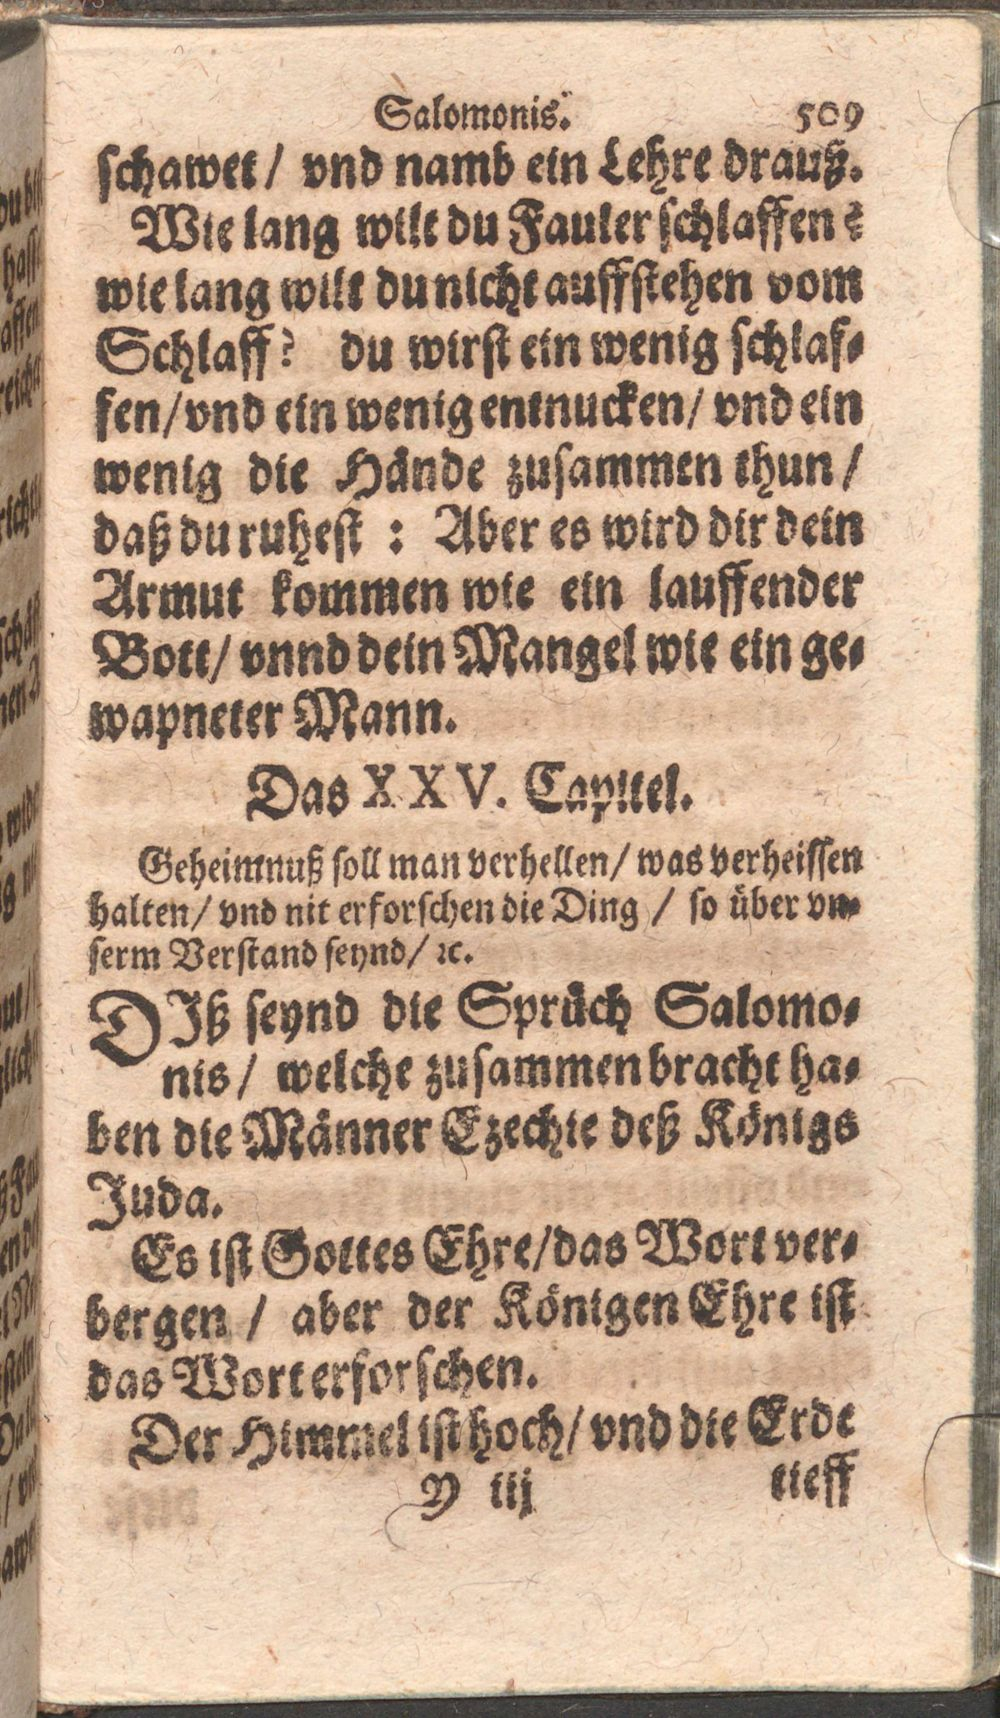 Salomonis. 509
schawet / vnd namb ein Lehre drauß.
Wie lang wilt du Fauler schlaffen?
wie lang wilt du nicht auffstehen vom
Schlaff? du wirst ein wenig schlaf-
fen / vnd ein wenig entnucken / vnd ein
wenig die Hände zusammen thun /
daß du ruhest : Aber es wird dir dein
Armut kommen wie ein lauffender
Bott / vnnd dein Mangel wie ein ge-
wapneter Mann.
Das XXV. Capitel.
Geheimnuß soll man verhellen / was verheissen
halten / vnd nit erforschen die Ding / so über vn-
serm Verstand seynd / ꝛc.
DIß seynd die Sprüch Salomo-
nis / welche zusammen bracht ha-
ben die Männer Ezechie deß Königs
Juda.
Es ist Gottes Ehre / das Wort ver-
bergen / aber der Königen Ehre ist
das Wort erforschen.
Der Himmel ist hoch / vnd die Erde
Y iij tieff